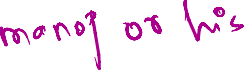 manoj or his